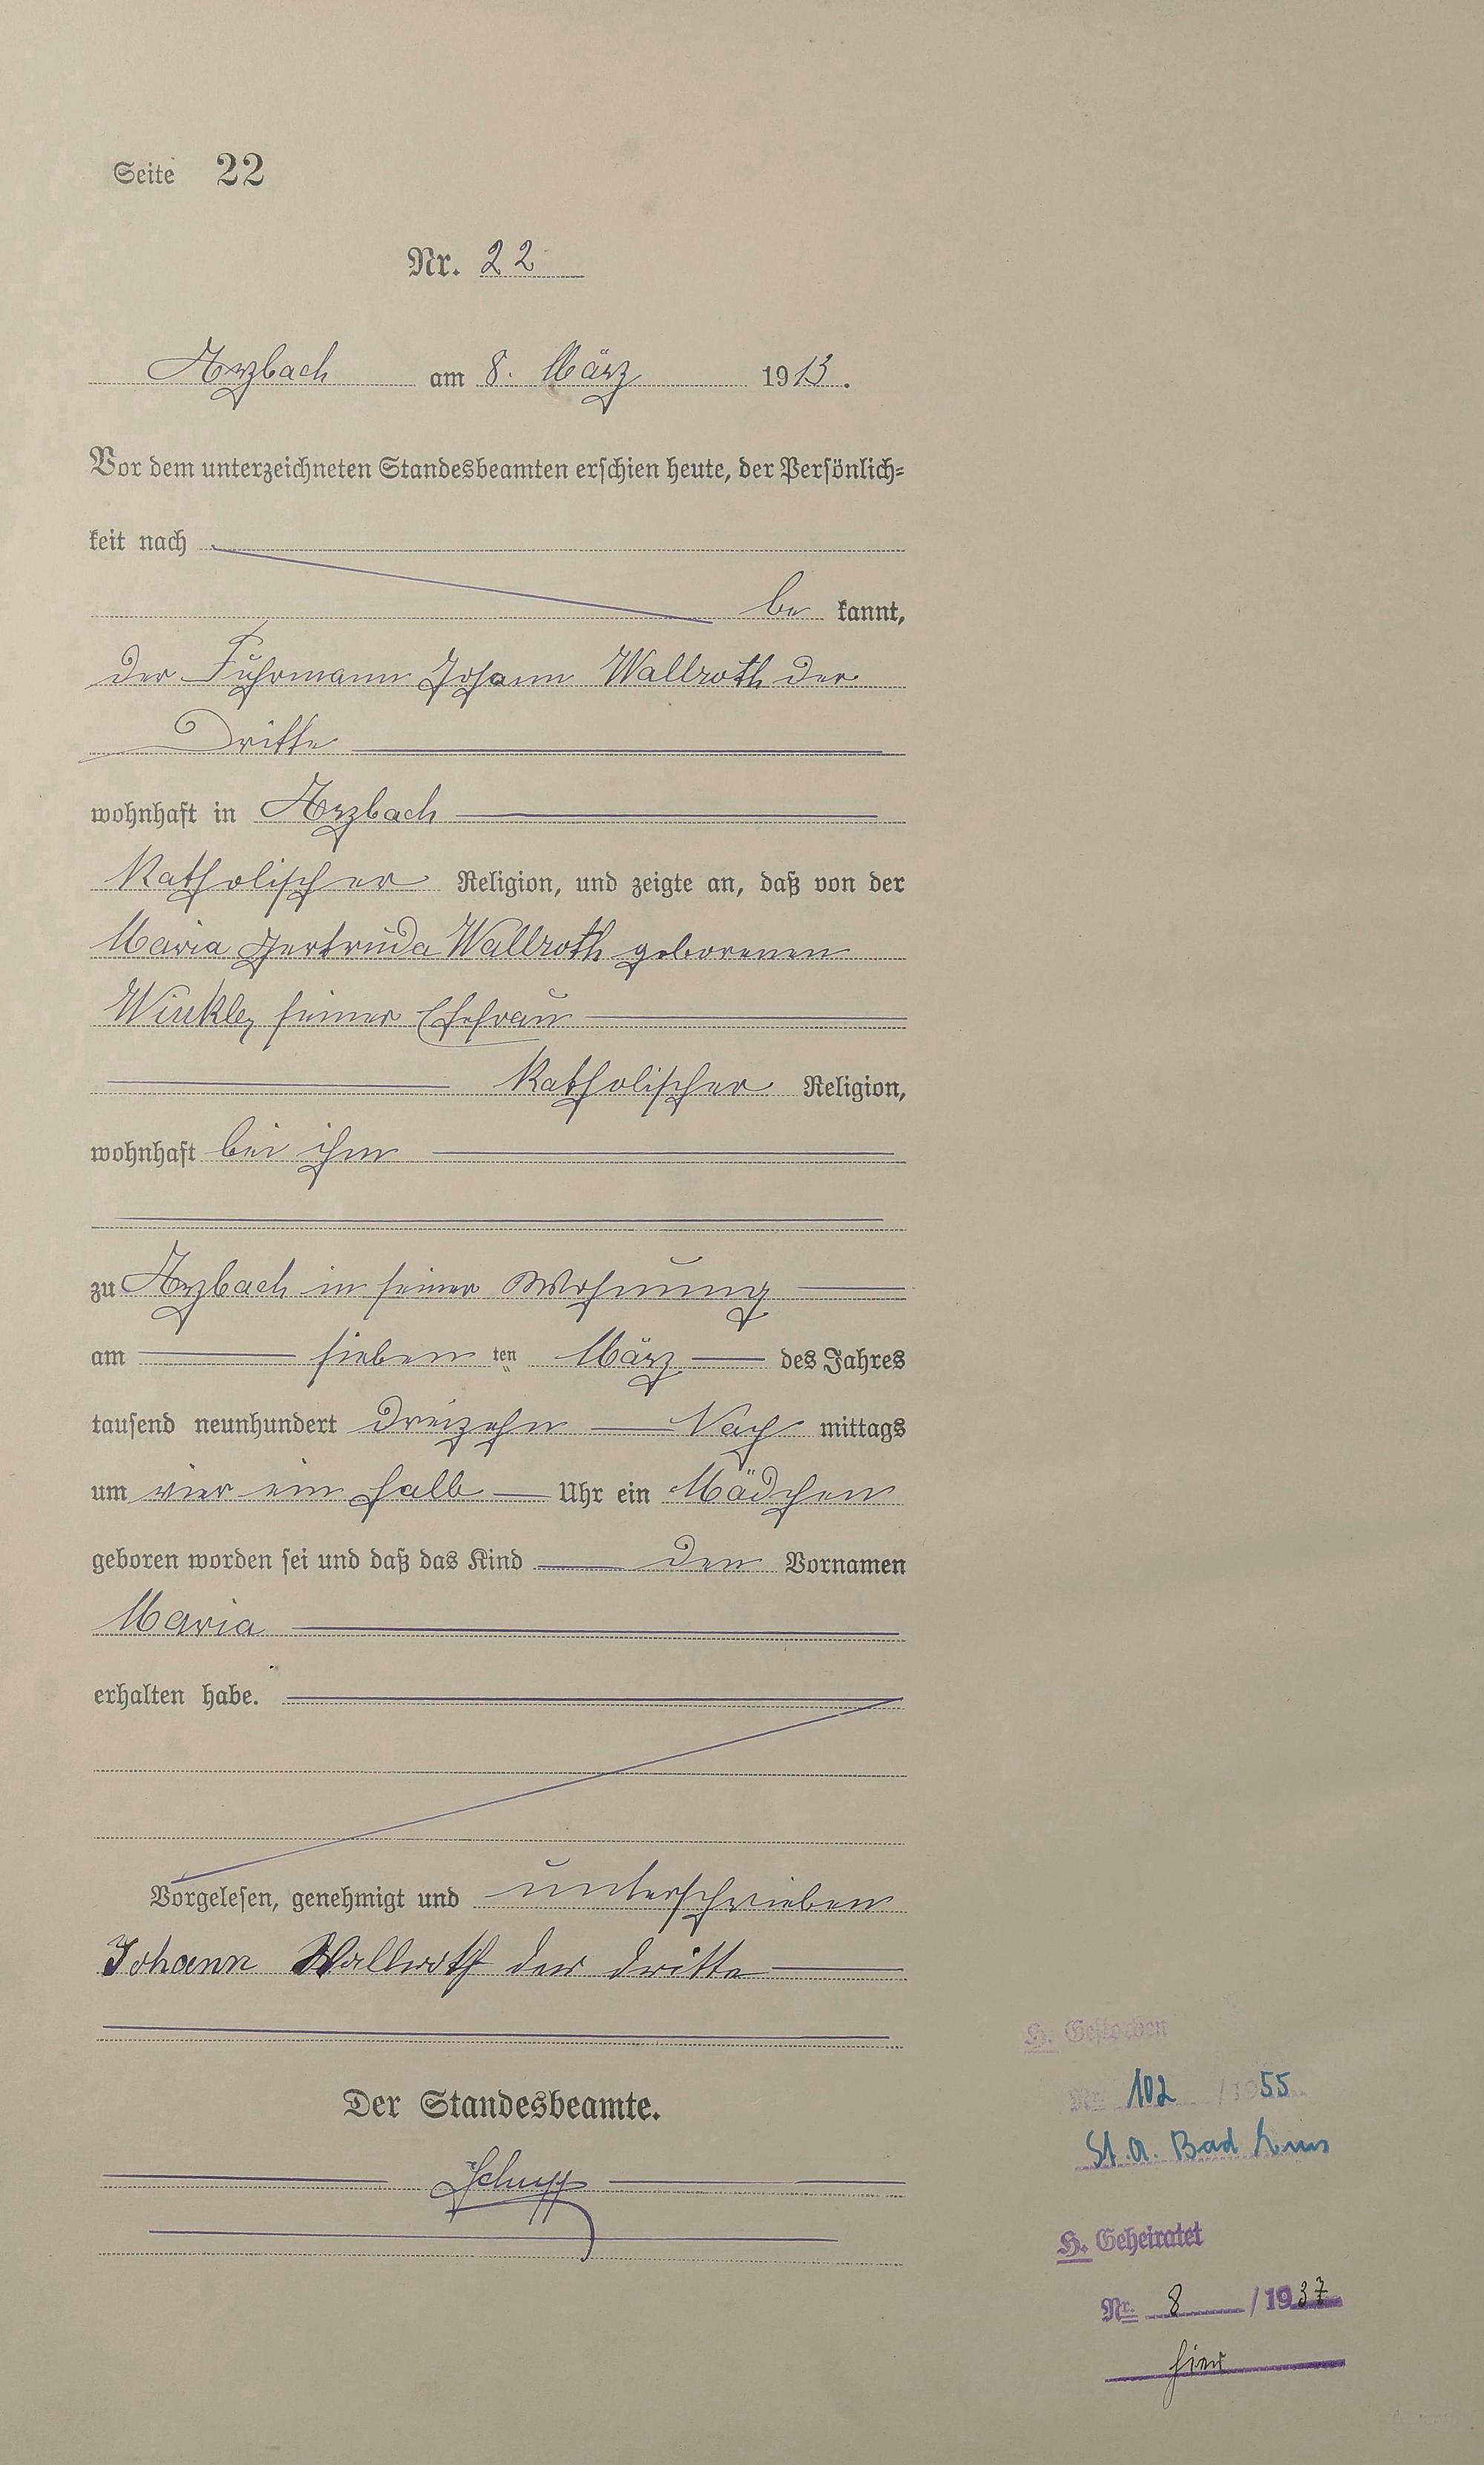 Seite 22
Nr. 22
Arzbach am 8. März 1913.
Vor dem unterzeichneten Standesbeamten erschien heute, der Persönlich=
keit nach
be kannt,
der Fuhrmann Johann Wallroth der
Dritte
wohnhaft in Arzbach
katholischer Religion, und zeigte an, daß von der
Maria Gertruda Wallroth geborenen
Winkler seiner Ehefrau
katholischer Religion,
wohnhaft bei ihm
zu Arzbach in seiner Wohnung
am sieben ten März des Jahres
tausend neunhundert dreizehn Nach mittags
um vier ein halb Uhr ein Mädchen
geboren worden sei und daß das Kind den Vornamen
Maria
erhalten habe.
Vorgelesen, genehmigt und unterschrieben
Johann Wallroth der dritte
Der Standesbeamte.
Schupp
H. Gestorben
Nr. 102 / 1955
St. A. Bad Ems
H. Geheiratet
Nr. 8 / 1937
hier